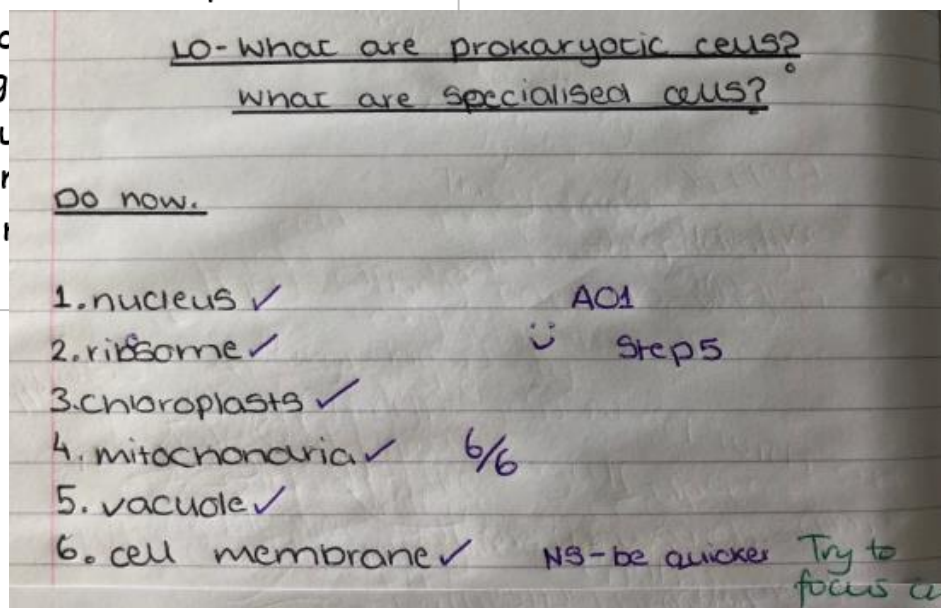 LO-What are prokaryotic cells?
What are specialised cells?
Do now.
1. nucleus ✓ AO1
2. ribosome ✓ Step 5
3. chloroplasts ✓
4. mitochondria ✓ 6/6
5. vacuole ✓
6. cell membrane ✓ NS-be quicker Try to
focus